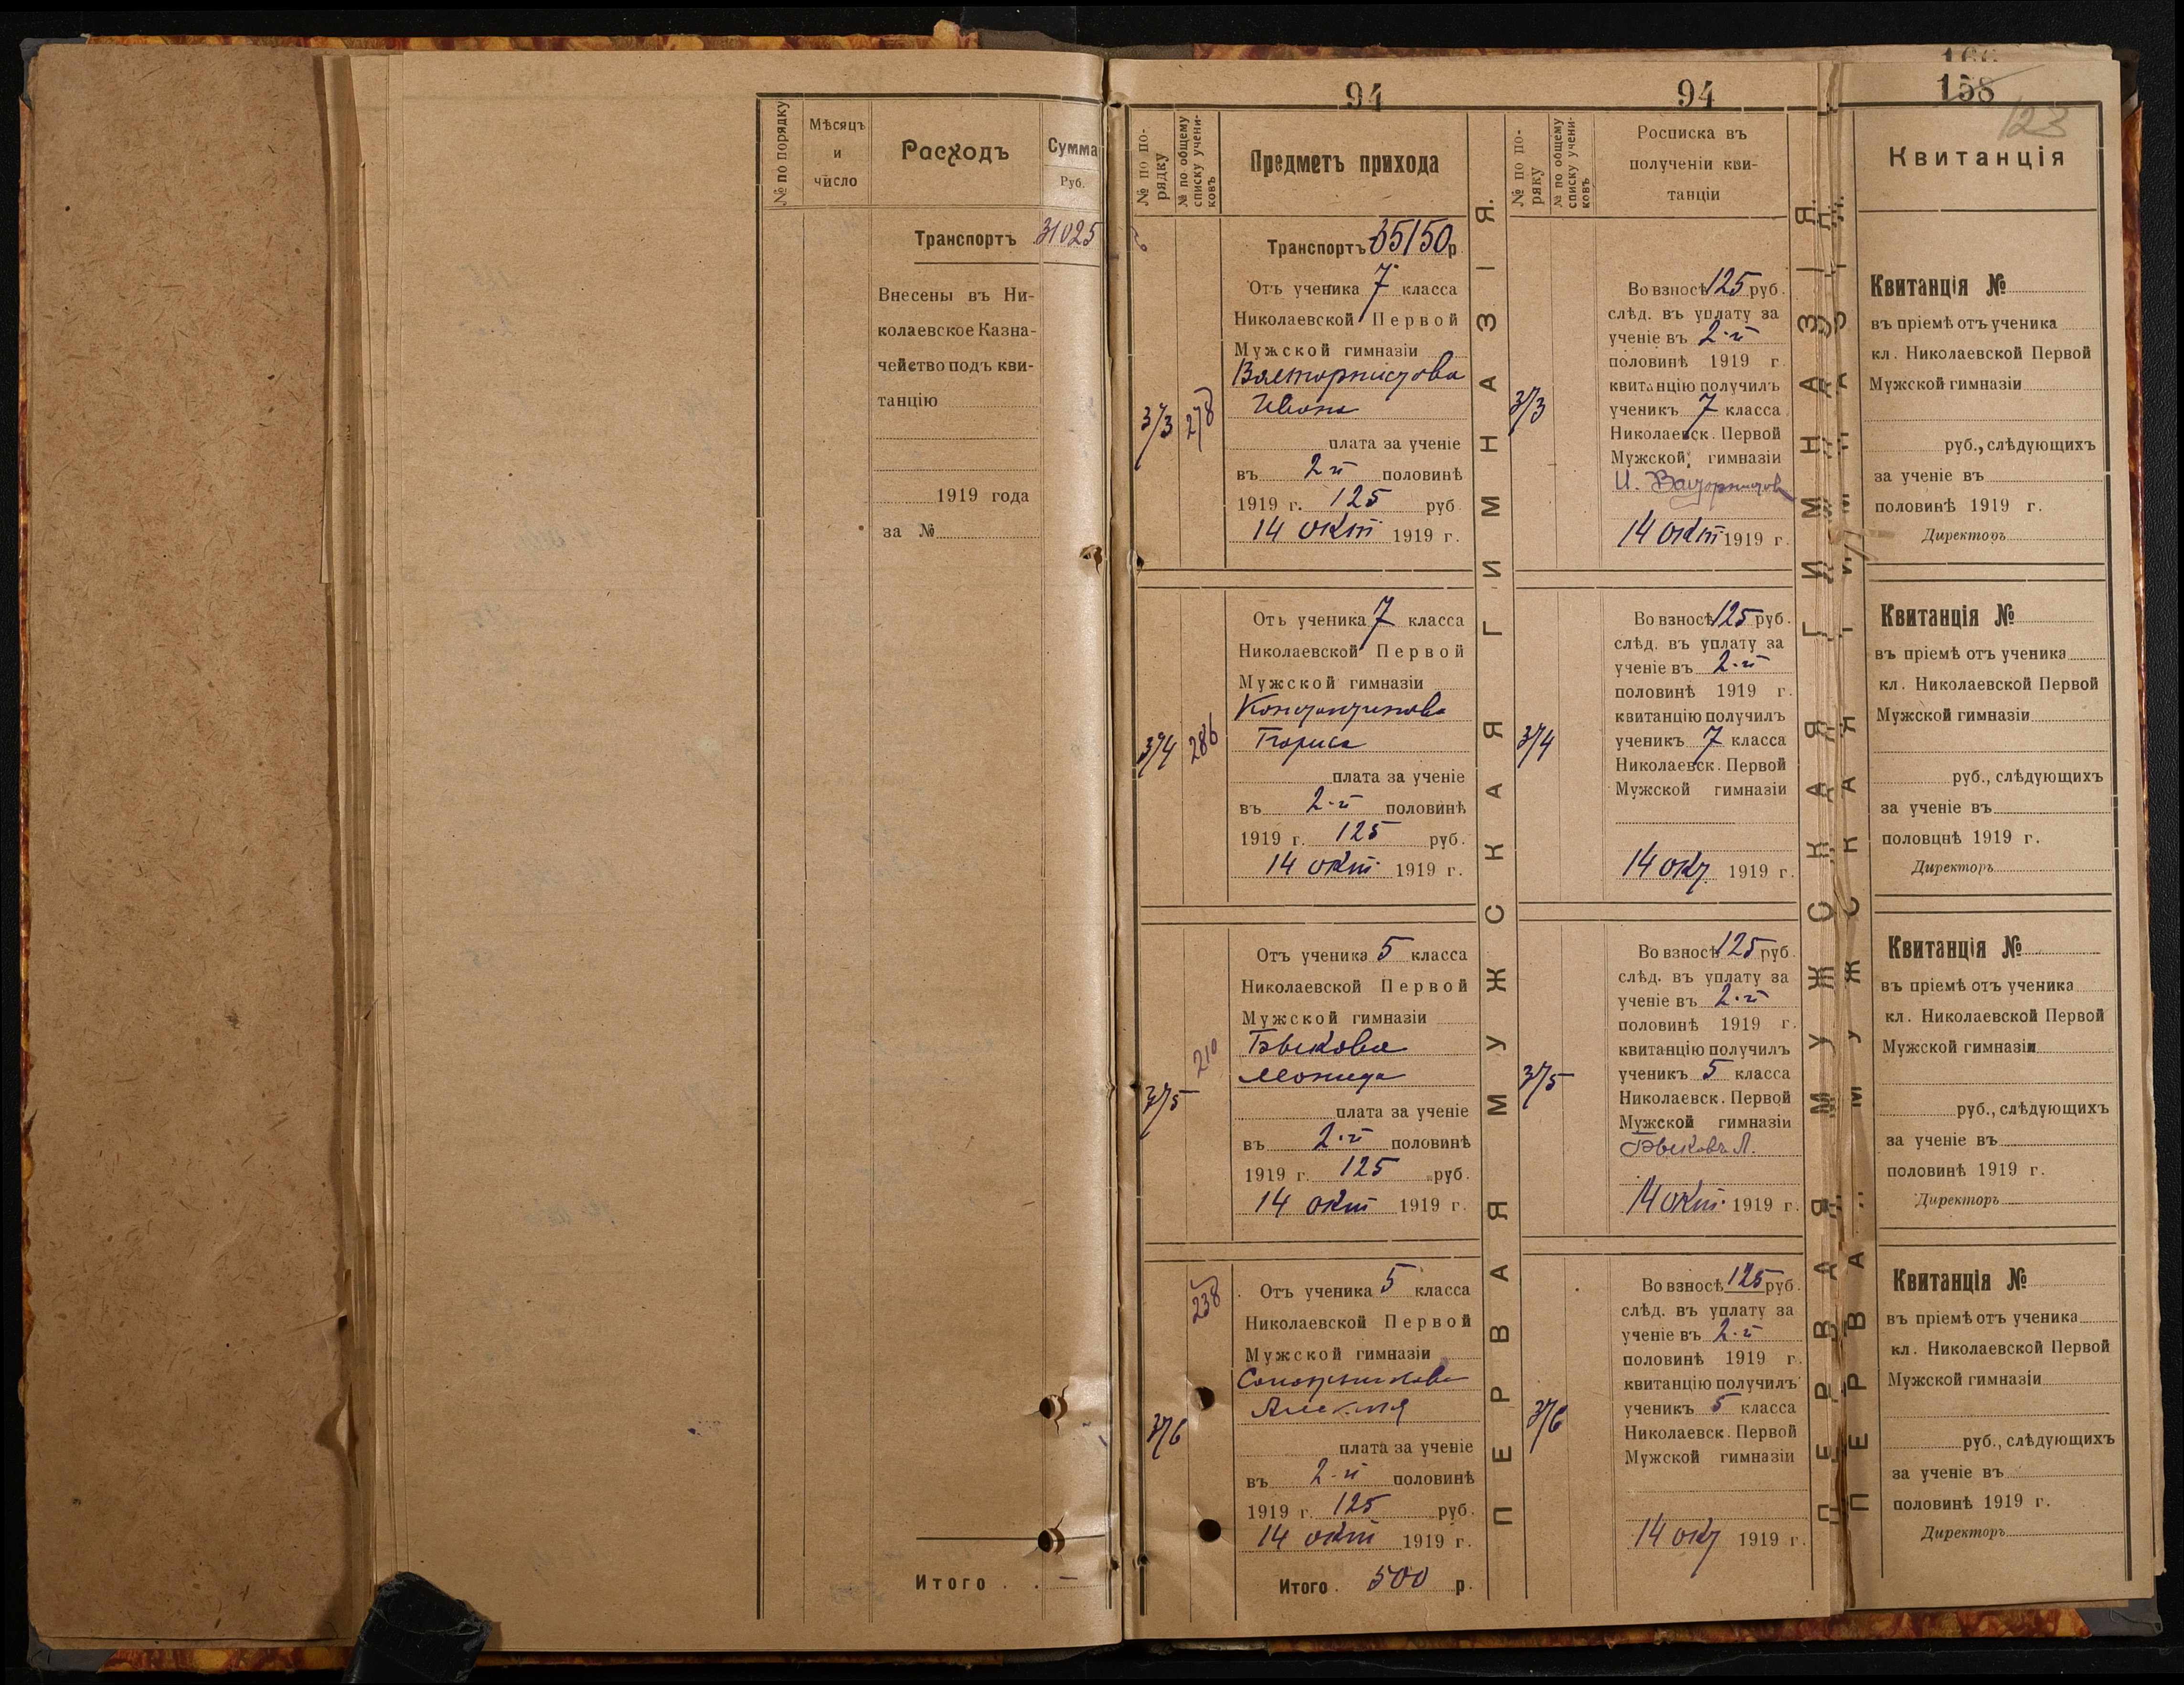 № по порядку
Мѣсяцъ
и
число
Расходъ
Сумма
Руб.
Транспортъ 31025
Внесены въ Ни-
колаевское Казна-
чейство подъ кви-
танцію
1919 года
за №
Итого . . —
94
№ по по-
рядку
№ по общему
списку учени-
ковъ
Предметъ прихода
Транспортъ 35150 р
373
278
Отъ ученика 7 класса
Николаевской Первой
Мужской гимназіи
Ивана
плата за ученіе
въ 2-й половинѣ
1919 г. 125 руб.
14 окт 1919 г.
374
286
Отъ ученика 7 класса
Николаевской Первой
Мужской гимназіи
Константинова
Бориса
плата за ученіе
въ 2-й половинѣ
1919 г. 125 руб.
14 окт 1919 г.
375
210
Отъ ученика 5 класса
Николаевской Первой
Мужской гимназіи
Быкова
Леонида
плата за ученіе
въ 2-й половинѣ
1919 г. 125 руб.
14 окт 1919 г.
376
238
Отъ ученика 5 класса
Николаевской Первой
Мужской гимназіи
Сапожникова
плата за ученіе
въ 2-й половинѣ
1919 г. 125 руб.
14 окт 1919 г.
Итого. 500 р.
ПЕРВАЯ МУЖСКАЯ ГИМНАЗІЯ.
94
№ по по-
ряку
№ по общему
списку учени-
ковъ
Росписка въ
полученіи кви-
танціи
373
Во взносѣ 125 руб.
слѣд. въ уплату за
ученіе въ 2-й
половинѣ 1919 г.
квитанцію получилъ
ученикъ 7 класса
Николаевск. Первой
Мужской гимназіи
14 окт 1919 г.
374
Во взносѣ 125 руб.
слѣд. въ уплату за
ученіе въ 2-й
половинѣ 1919 г.
квитанцію получилъ
ученикъ 7 класса
Николаевск. Первой
Мужской гимназіи
14 окт 1919 г.
375
Во взносѣ 125 руб.
слѣд. въ уплату за
ученіе въ 2-й
половинѣ 1919 г.
квитанцію получилъ
ученикъ 5 класса
Николаевск. Первой
Мужской гимназіи
Быковъ Л.
14 окт 1919 г.
376
Во взносѣ 125 руб.
слѣд. въ уплату за
ученіе въ 2-й
половинѣ 1919 г.
квитанцію получилъ
ученикъ 5 класса
Николаевск. Первой
Мужской гимназіи
14 окт 1919 г.
ПЕРВАЯ МУЖСКАЯ ГИМНАЗІЯ.
158
123
Квитанція
Квитанція №
въ пріемѣ отъ ученика
кл. Николаевской Первой
Мужской гимназіи
руб., слѣдующихъ
за ученіе въ
половинѣ 1919 г.
Директоръ
Квитанція №
въ пріемѣ отъ ученика
кл. Николаевской Первой
Мужской гимназіи
руб., слѣдующихъ
за ученіе въ
половцнѣ 1919 г.
Директоръ
Квитанція №
въ пріемѣ отъ ученика
кл. Николаевской Первой
Мужской гимназіи
руб., слѣдующихъ
за ученіе въ
половинѣ 1919 г.
Директоръ
Квитанція №
въ пріемѣ отъ ученика
кл. Николаевской Первой
Мужской гимназіи
руб., слѣдующихъ
за ученіе въ
половинѣ 1919 г.
Директоръ